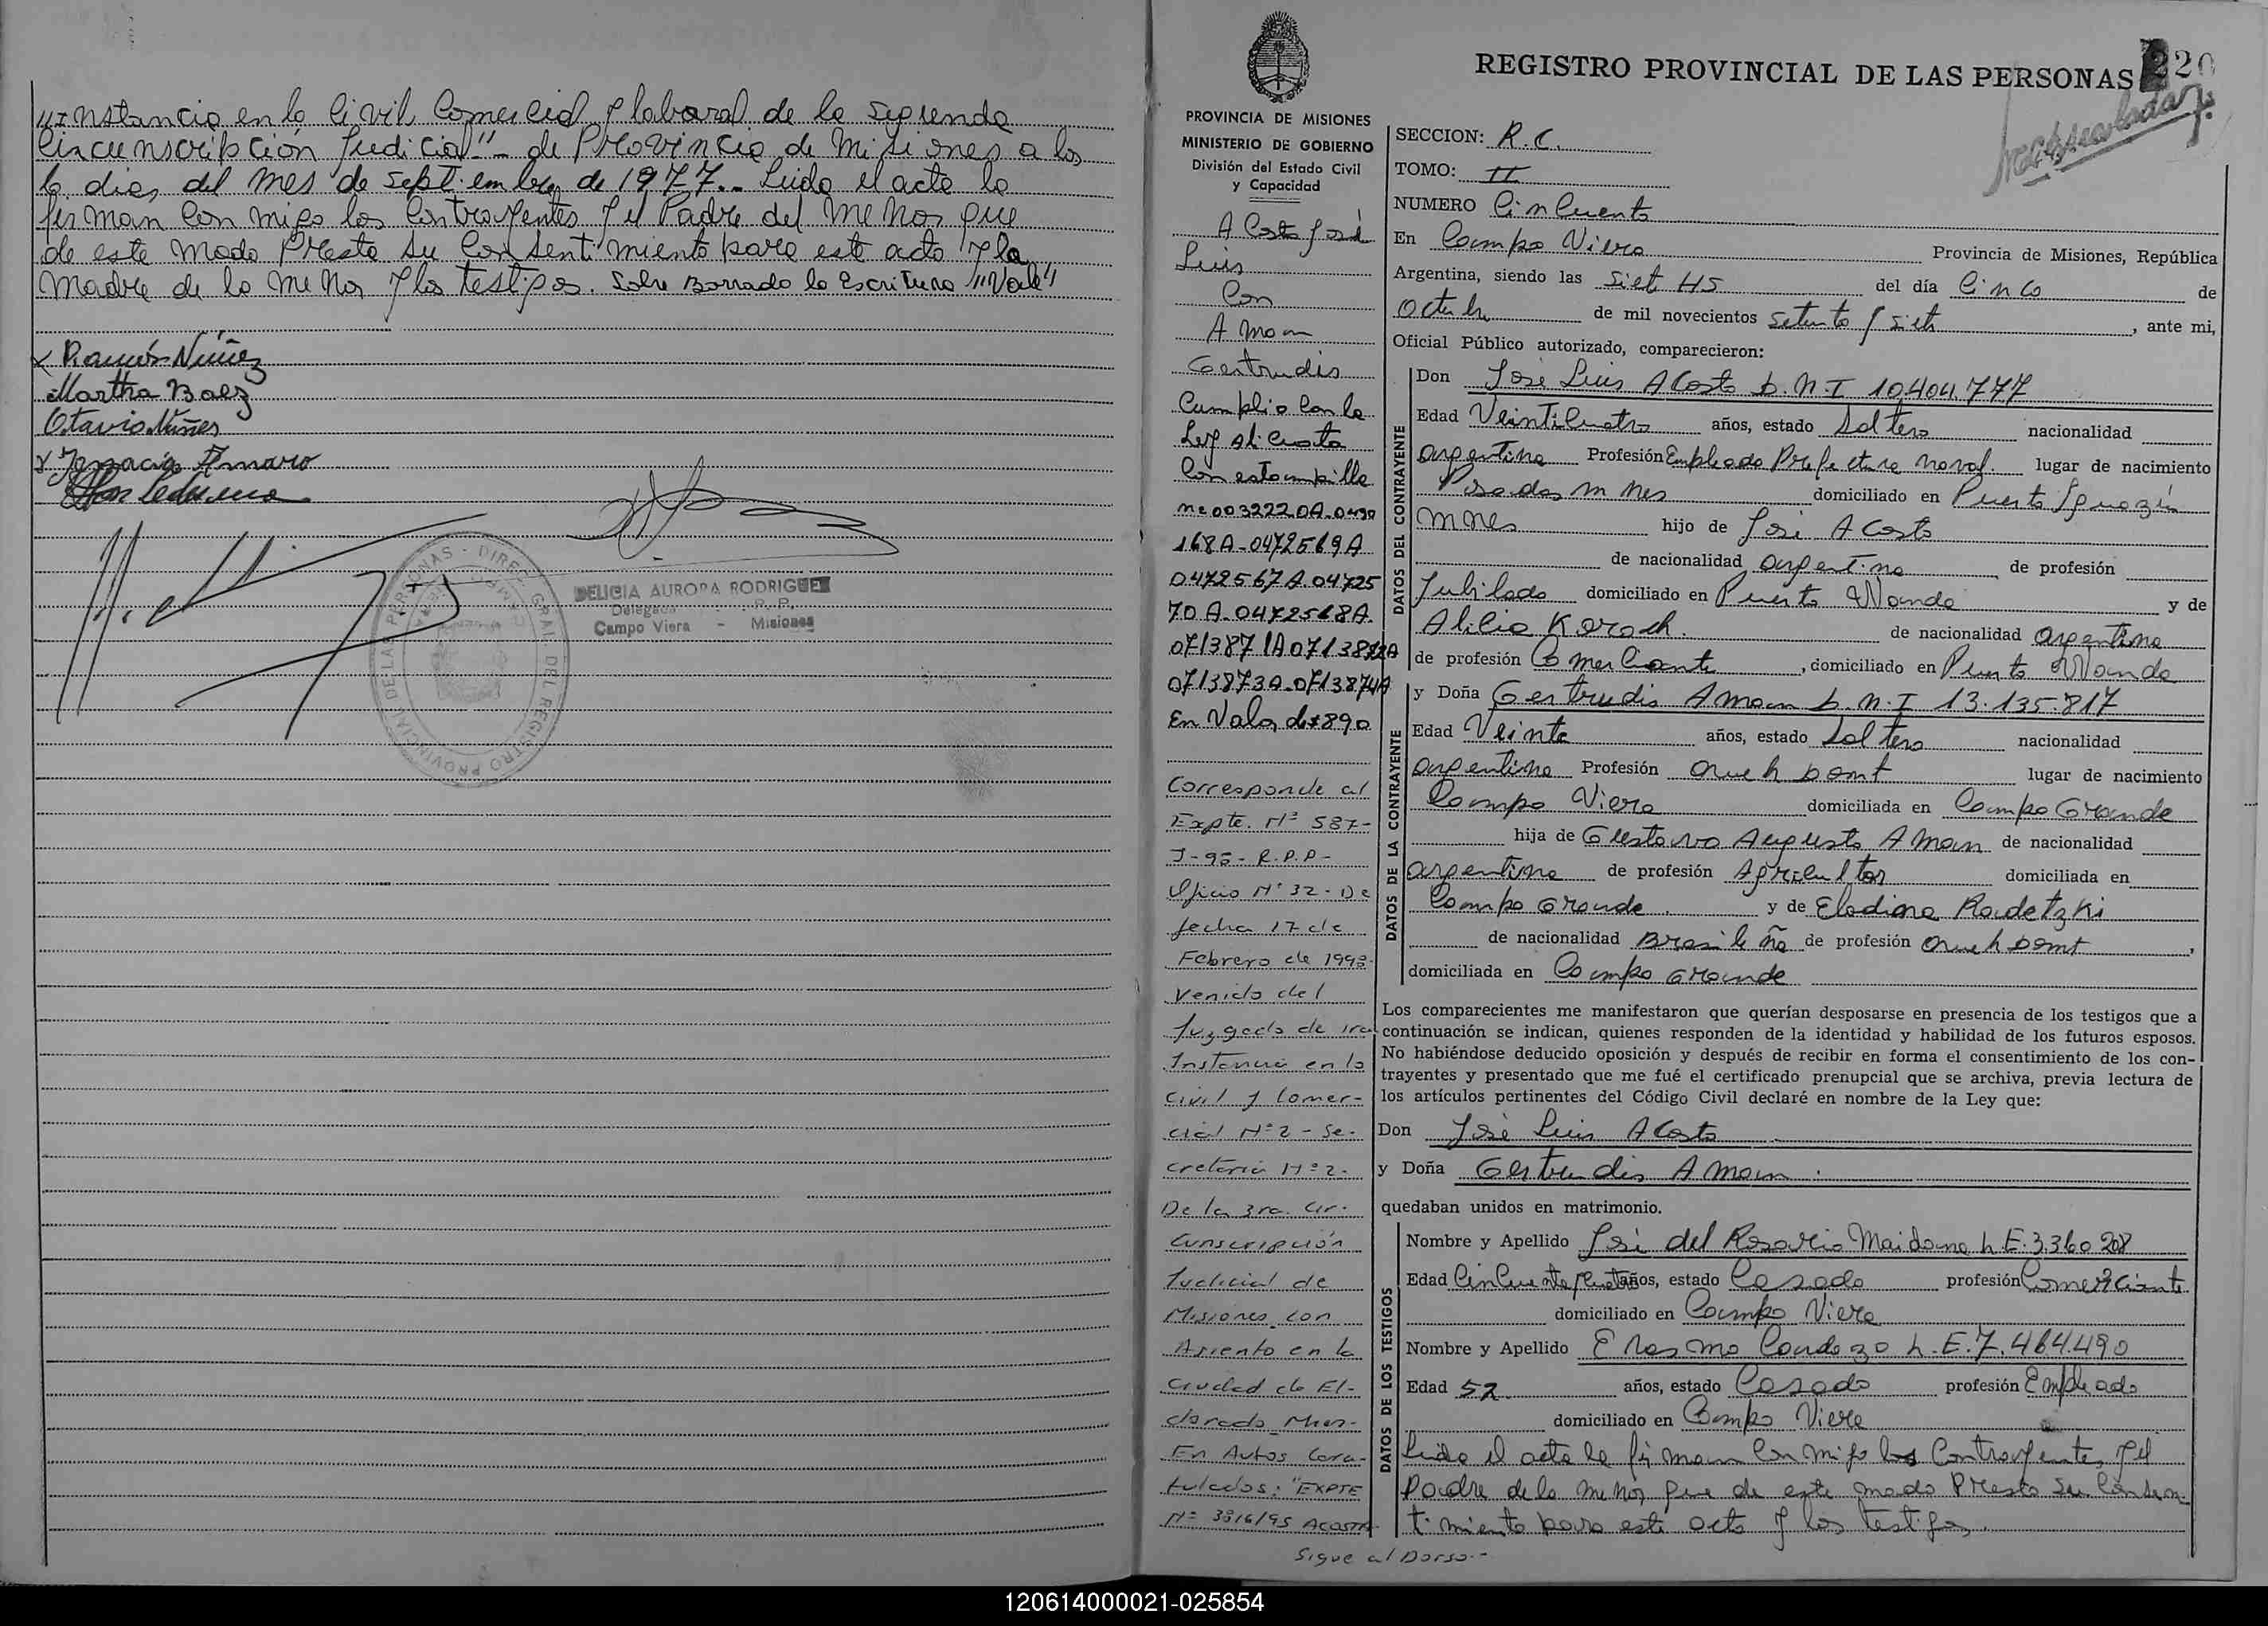 "Instancia en lo Civil Comercial y laboral de la segunda
Circunscripción Judicial" - de Provincia de Misiones a los
dias del mes de septiembre de 1977.- Leida el acta la
firman con migo los Contrayentes y el Padre del menor que
de este modo Presta su Consentimiento para este acto y la
madre de la menor y los testigos. Sobre Borrado la Escritura "Vale"
Ramón Nuñez
Martha Baez
Otavio Nuñes
Ignacio Amaro
DELICIA AURORA RODRIGUEZ
Delegada R. P.
Campo Viera - Misiones
PROVINCIAL DE LAS PERSONAS - DIREC. GRAL. DEL REGISTRO
REGISTRO PROVINCIAL DE LAS PERSONAS
220
PROVINCIA DE MISIONES
MINISTERIO DE GOBIERNO
División del Estado Civil
y Capacidad
Acosta José
Luis
Con
Aman
Gertrudis
Cumplio con la
Ley
Con estampilla
168A-0472569A
0472567A.04725
70A.0472568A.
0713871A0713872A
0713873A-0713874A
En Valor de $890
Corresponde al
Expte. Nº 587-
J-95- R.P.P-
Oficio Nº 32- De
fecha 17 de
Febrero de 1998.
Venido del
Juzgado de 1ra
Instancia en lo
Civil y Comer-
cial Nº 2 - Se-
cretaria Nº 2.
De la 3ra. Cir-
cunscripción
Judicial de
Misiones con
Asiento en la
Ciudad de El-
dorado Mnes-
En Autos Cara-
tulados: "EXPTE
Nº 3316/95 ACOSTA
Sigue al Dorso.-
SECCION: R.C.
TOMO: II
NUMERO Cincuenta
En Campo Viera Provincia de Misiones, República
Argentina, siendo las siete HS del día Cinco de
Octubre de mil novecientos setenta y siete, ante mi,
Oficial Público autorizado, comparecieron:
DATOS DEL CONTRAYENTE
Don José Luis Acosta D.N.I 10.404.777
Edad Veinticuatro años, estado Soltero nacionalidad
argentina Profesión Empleado Prefectura naval. lugar de nacimiento
Posadas mnes domiciliado en Puerto Iguazú
mnes hijo de José Acosta
de nacionalidad argentina de profesión
Jubilado domiciliado en Puerto Wanda y de
Alicia Karach. de nacionalidad argentina
de profesión Comerciante, domiciliado en Puerto Wanda
DATOS DE LA CONTRAYENTE
y Doña Gertrudis Aman D.N.I 13.135.817
Edad Veinte años, estado Soltera nacionalidad
argentina Profesión lugar de nacimiento
Campo Viera domiciliada en Campo Grande
hija de Gustavo Augusto Aman de nacionalidad
argentina de profesión Agricultor domiciliada en
Campo Grande. y de Eladiana Radetzki
de nacionalidad Brasileña de profesión
domiciliada en Campo Grande
Los comparecientes me manifestaron que querían desposarse en presencia de los testigos que a
continuación se indican, quienes responden de la identidad y habilidad de los futuros esposos.
No habiéndose deducido oposición y después de recibir en forma el consentimiento de los con-
trayentes y presentado que me fué el certificado prenupcial que se archiva, previa lectura de
los artículos pertinentes del Código Civil declaré en nombre de la Ley que:
Don José Luis Acosta
y Doña Gertrudis Aman.
quedaban unidos en matrimonio.
DATOS DE LOS TESTIGOS
Nombre y Apellido José del Rosario Maidana L.E. 3.360 208
Edad Cincuenta y Cuatro años, estado Casado profesión Comerciante
domiciliado en Campo Viera
Nombre y Apellido Erasmo Cardozo L.E. 7.464.490
Edad 52 años, estado Casado profesión Empleado
domiciliado en Campo Viera
Leida el acta la firman con migo los Contrayentes, y el
Padre de la menor que de este modo Presta su Consen-
timiento para este acto y los testigos.
120614000021-025854